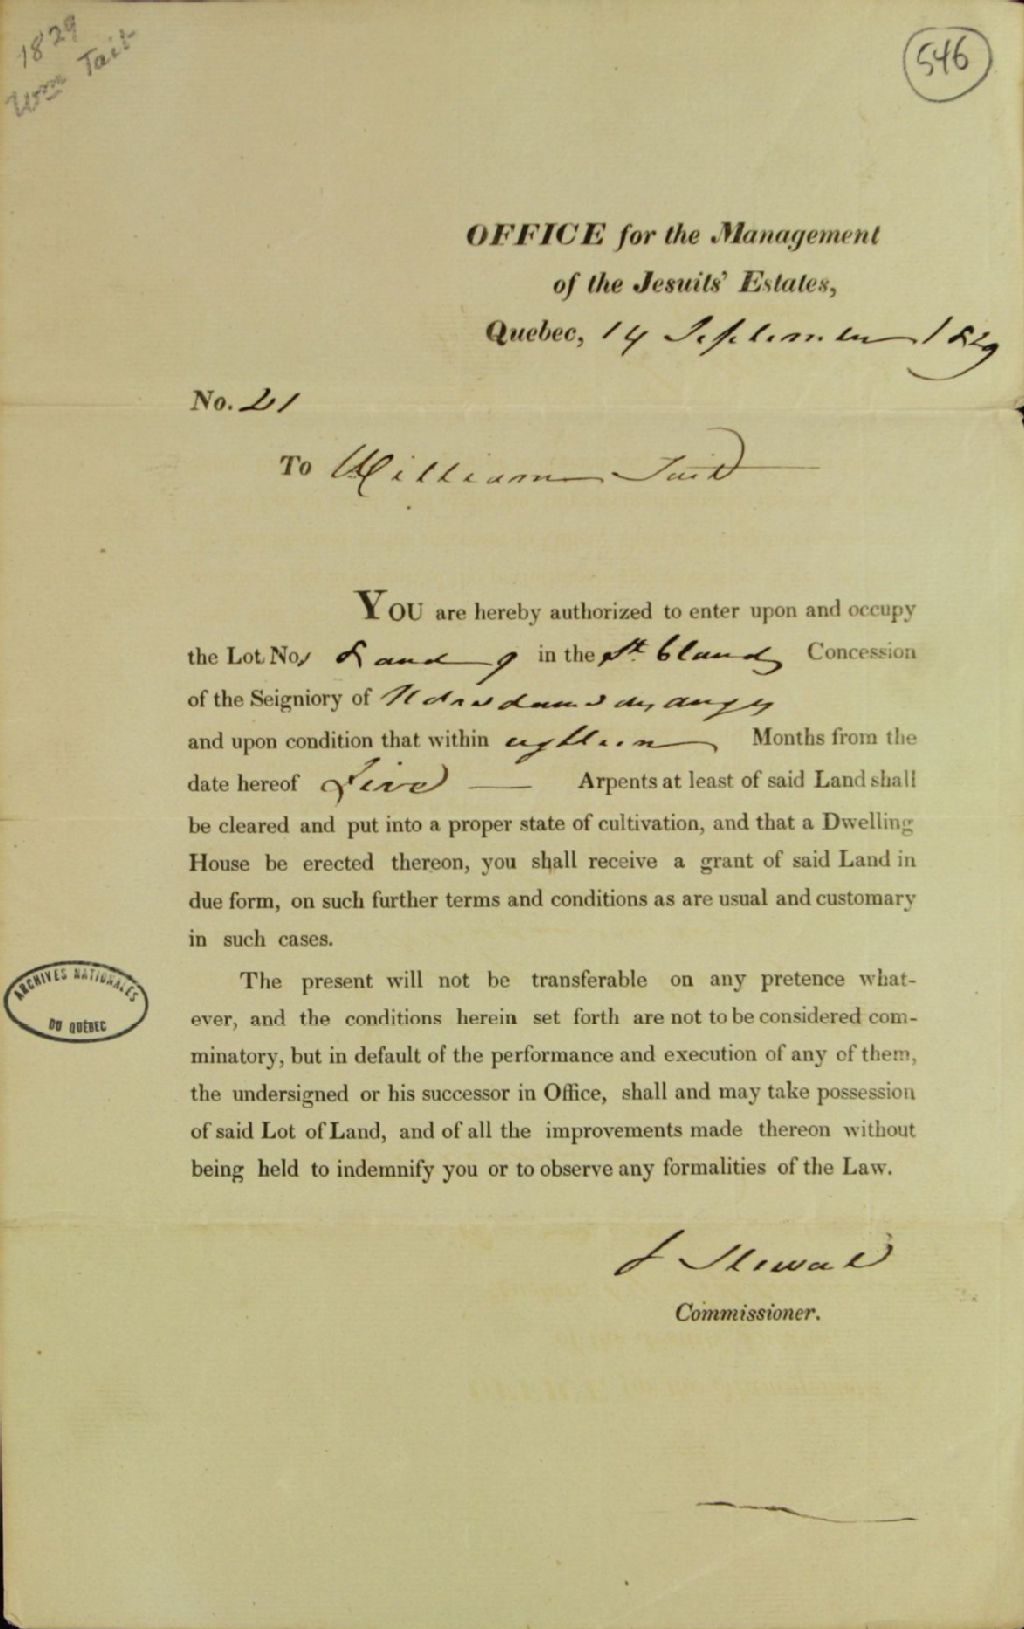 1829
Wm Tait
546
OFFICE for the Management
of the Jesuits' Estates,
Quebec, 14 September 1829
No. 21
To William Tait
YOU are hereby authorized to enter upon and occupy
the Lot Nos 8 and 9 in the St. Claude Concession
of the Seigniory of Notre dame des anges
and upon condition that within eighteen Months from the
date hereof Five Arpents at least of said Land shall
be cleared and put into a proper state of cultivation, and that a Dwelling
House be erected thereon, you shall receive a grant of said Land in
due form, on such further terms and conditions as are usual and customary
in such cases.
The present will not be transferable on any pretence what-
ever, and the conditions herein set forth are not to be considered com-
minatory, but in default of the performance and execution of any of them,
the undersigned or his successor in Office, shall and may take possession
of said Lot of Land, and of all the improvements made thereon without
being held to indemnify you or to observe any formalities of the Law.
ARCHIVES NATIONALES
DU QUÉBEC
J Stewart
Commissioner.